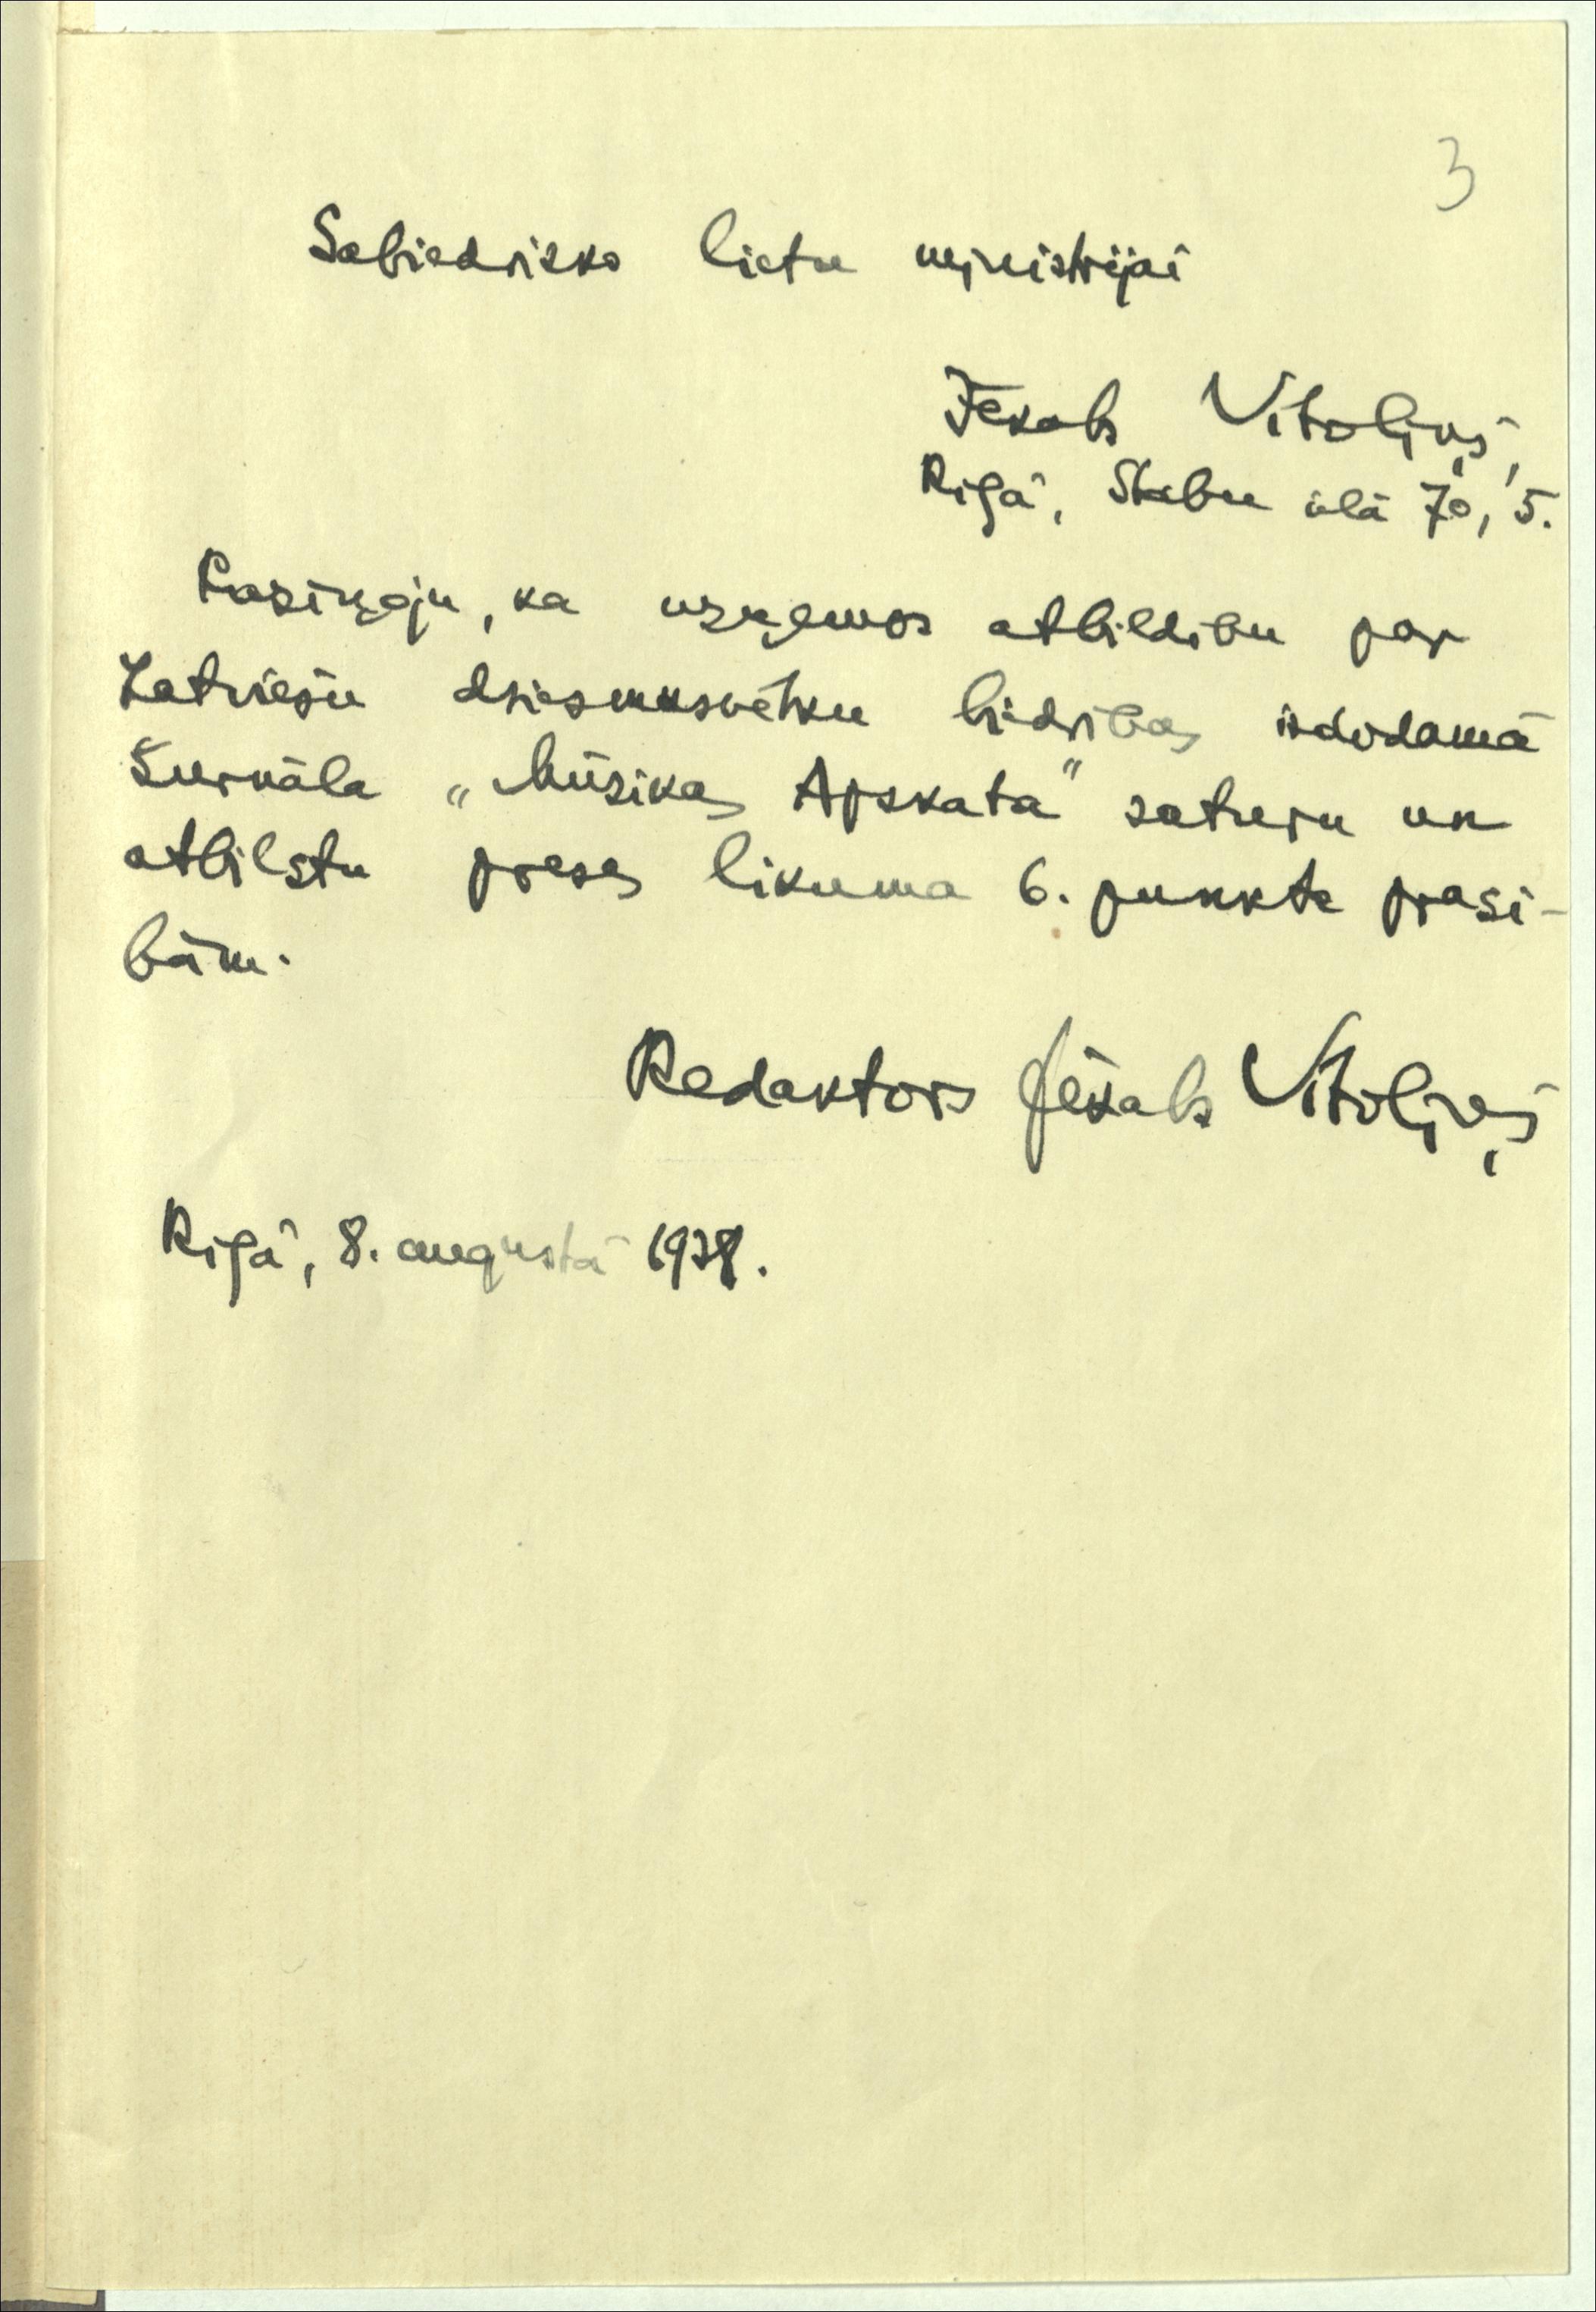 3
Sabiedrisko lietu ministrijai
Jēkabs Vītoliņš,
Rīgā, Stabu ielā 70, 5.
Paziņoju, ka uzņemos atbildību par
Latviešu dziesmusvētku biedrības izdodamā
žurnāla „Mūzikas Apskata" saturu un
atbilstu preses likuma 6. punkta prasī-
bām.
Redaktors Jēkabs Vītoliņš
Rīgā, 8. augustā 1938.